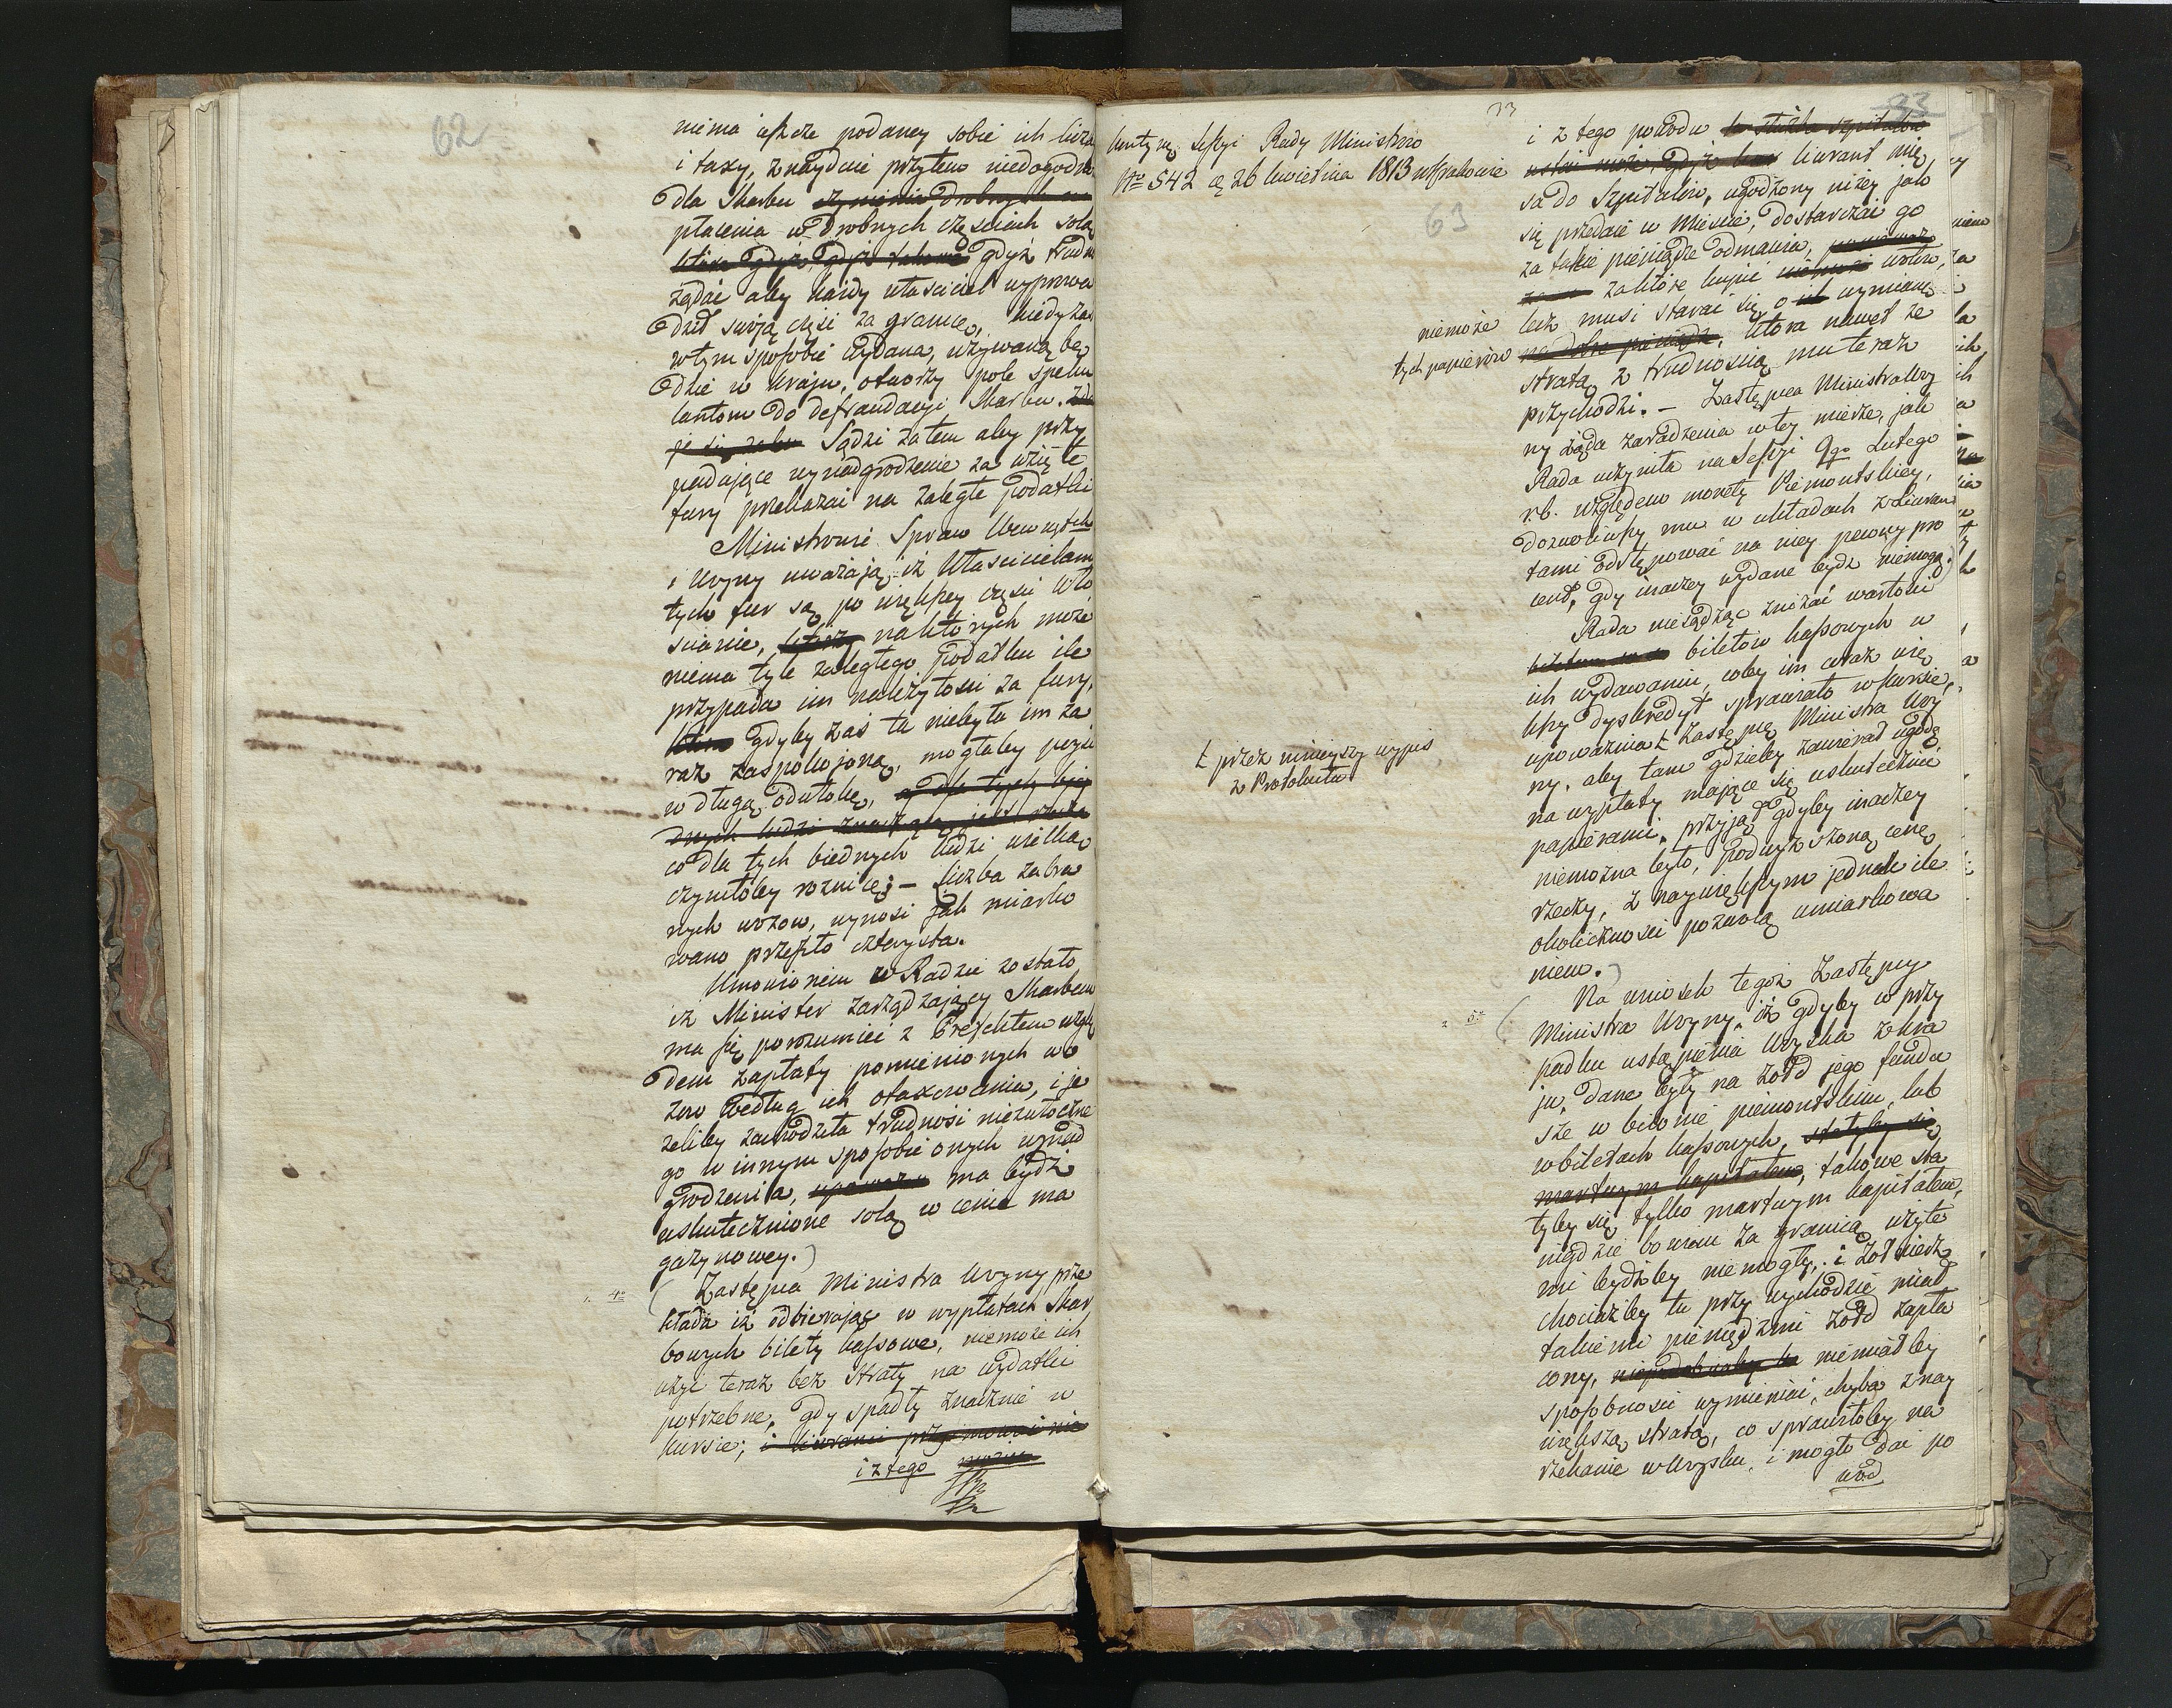 62
nima ieszcze podaney sobie ich liczb
i taxy, znayduie przytem niedogodno
dla Skarbu
płacenia w drobnych częściach solą
gdyż trudno
żądać aby każdy właściciel wyprowa
dził swoją część za granicę, kiedy zaś
w tym sposobie wydana, używaną bę
dzie w kraju, otworzy pole speku
lantom do defraudacyi Skarbu.
Sądzi zatem aby przy
padające wynadgrodzenie za wzięte
fury przekazać na zaległe podatki
Ministrowie Spraw Wewnętch
i Woyny uważaią iż Właścicielam
tych fur są po większey części Wło
ścianie, na których może
niema tyle zaległego podatku ile
przypada im należytości za fury,
gdyby zaś ta niebyła im za
raz zaspokojoną, mogłaby pójść
w długą odwłokę, a dla tych bie
dnych ludzi
co dla tych biednych ludzi wielką
czyniłoby roznicę; – liczba zabra
nych wozow, wynosi jak miarko
wano przeszło czterysta.
Umowionem w Radzie zostało
iż Minister zarządzający Skarbem
ma się porozumieć z Prefektem wzglę
dem zapłaty pomienionych wo
zow według ich otaxowania, i je
żeliby zachodziła trudność niezwłoczne
go w innym sposobie onych wynad
grodzenia, ma bydź
uskutecznione solą w cenie ma
gazynowey.)
4o
( Zastępca Ministra Woyny prze
kłada iż odbierając w wypłatach Skar
bowych bilety kassowe, niemoże ich
użyć teraz bez straty na wydatki
potrzebne, gdy spadły znacznie w
kursie; i liweranci przyimować nie
można
i z tego
33
33
Kontynuc. Sessyi Rady Ministrów
No 542 d. 26 kwietnia 1813 w Krakowie
63
i z tego powodu ta służba szpitalów
ustać może, gdyż liwerant mię
sa do Szpitalów, ugodzony niżey jak
się przedaie w Mieście, dostarczać go
za takie pieniądze odmawia, ponieważ
za które kupić wołów,
niemoże
lecz musi starać się o wymianę
tych papierów
na dobre pieniądze, która nawet ze
stratą z trudnością mu teraz
przychodzi. – Zastępca Ministra Woy
ny żąda zaradzenia w tey mierze, jak
Rada uczyniła na Sessyi 9go Lutego
r.b. względem monety Piemontskiey,
dozwoliwszy mu w układach z Liweran
tami odstępować na niey pewny pro
cent, gdy inaczey wydane bydź niemogą.)
Rada niesądząc zniżać wartości
biletów kassowych w
ich wydawaniu, coby im coraz wię
kszy dyskredyt sprawiało w kursie,
upoważnia Ł Zastępcę Ministra Woy
Ł przez ninieyszy wypis
z Protokułu
ny, aby tam gdzieby zawierał ugodę
na wypłaty mające się uskutecznić
papierami, przyjął gdyby inaczey
niemożna było, podwyższoną cenę
rzeczy, z naywiększym jednak ile
okoliczności pozwolą umiarkowa
niem.)
5o
( Na wniosek tegoż Zastępcy
Ministra Woyny, iż gdyby w przy
padku ustąpienia Woyska z kra
ju, dane były na żołd jego fundu
sze w bilonie piemontskim, lub
w biletach kassowych, stałyby się
martwym kapitałem, takowe sta
łyby się tylko martwym kapitałem,
nigdzie bowiem za granicą użyte
mi bydźby niemogły, i żołnierz
chociażby tu przy wychodzie miał
takiemi pieniędzmi żołd zapła
cony, niemiałby
sposobności wymienić, chyba z nay
większą stratą, co sprawiłoby na
rzekanie w Woysku, i mogło dać po
wód